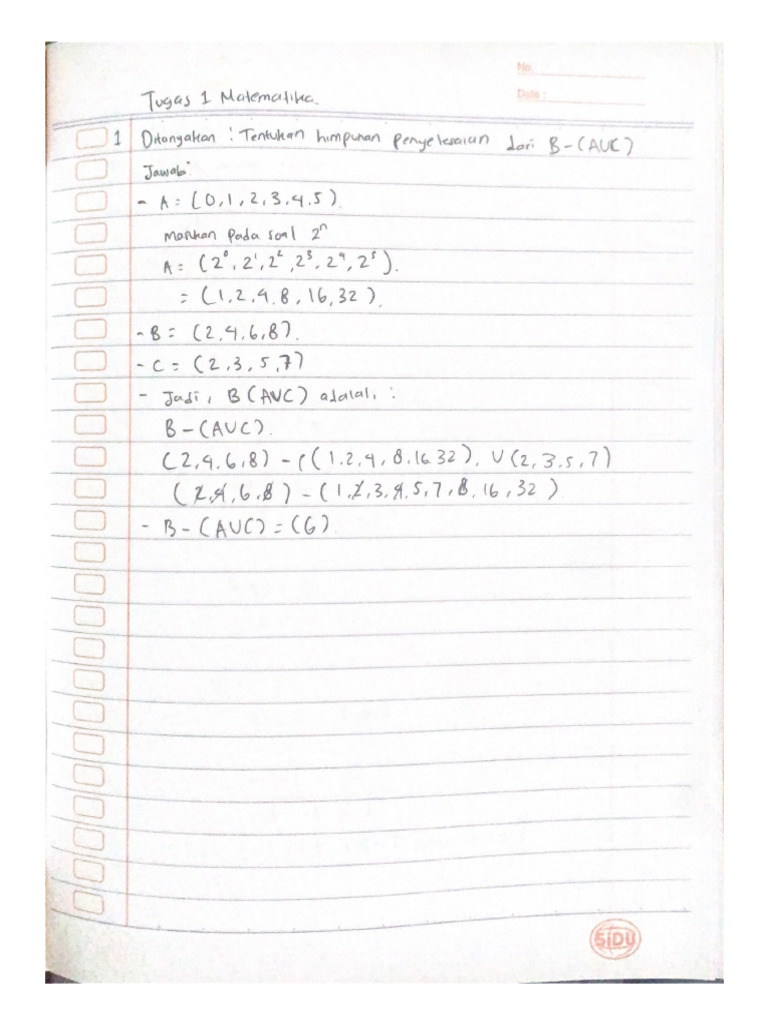 No.
Date :
Tugas 1 Matematika.
1 Ditanyakan : Tentukan himpunan penyelesaian dari B-(AUC)
Jawab:
- A = (0,1,2,3,4,5).
masukan pada soal 2ⁿ
A = (2⁰, 2¹, 2², 2³, 2⁴, 2⁵).
= (1, 2, 4, 8, 16, 32).
- B = (2,4,6,8).
- C = (2,3,5,7)
- Jadi, B(AUC) adalah :
B-(AUC).
(2,4,6,8) - ((1,2,4,8,16 32), U (2,3,5,7)
(2,4,6,8) - (1,2,3,4,5,7,8,16,32)
- B-(AUC) = (6).
SIDU